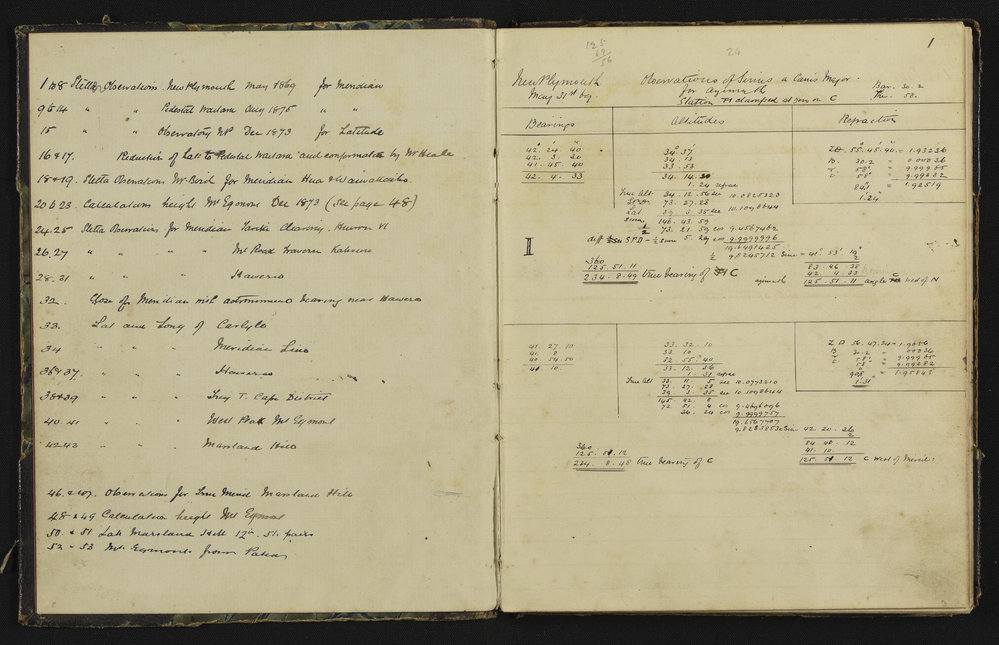 1 to 8 Stella Observations. New Plymouth May 1869 for Meridian
9 to 14 " " Pedestal Waitara Aug 1875 " "
15 " " Observatory NP Dec 1873 for Latitude
16 & 17. Reduction of Lat: to Pedestal Waitara and confirmation by Mr
18 & 19. Stella Observations Mr Baird for Meridian Hua & Waiwakaiho
20 to 23. Calculations height Mt Egmont Dec 1873 (see page 48)
24.25 Stella Observations for Meridian Clearing,
26.27 " " " " Mt Traverse
28.31 " " " Hawera
32. Close of Meridian astronomical bearing near Hawera
33. Lat and Long of Carlyle
34 " " " " Meridian Line
36 & 37. " " " " Hawera
38 & 39 " " " " Trig T. Cape District
40.41 " " " " West Peak Mt Egmont
42.43 " " " Marsland Hill
46. & 47. Observations for True Merid Marsland Hill
48 & 49 Calculation height Mt Egmont
50. & 51 Lat Marsland Hill 12in. 51. pairs
52 - 53 Mt. Egmont from Patea
125
69
56
24
1
New Plymouth
May 31st 69.
Observations of Sirius a Canis Major.
for azimuth
Station clamped at zero on C
Bar. 30.2
Thr. 58.
Bearings
Altitudes
Refraction
42. 24. 40
42. 3. 20
41. 45. 40
42. 4. 33
34° 37'
34. 13
33. 53
34. 14. 20
1. 24 refrac
True Alt 34. 12. 56 sec 10.0825323
73. 27. 28
Lat. 39. 3. 35 sec 10.1098644
Sum. 146. 43. 59
1/2 73. 21. 59 cos 9.4567462
diff SPD - 1/2 sum 5. 29 cos 9.9999996
19.6491425
1/2 9.8245712 Sine = 41° 53' 19"
2
ZD 55. 45. 40 = 1.93236
B. 30.2 " 0.00036
T. 58° " 9.99965
58° " 9.99282
84" " 1.92519
1.24
I
360
125. 51. 11
234. 8. 49 true bearing of C
83. 46. 38
42. 4. 33
azimuth 125. 51. 11 angle C West of N
41. 27. 10
41. 8
40. 54. 50
41. 10.
33. 32. 10
33. 10
32. 55. 40
33. 12. 36
1. 31 refrac
True Alt 33. 11. 5 sec 10.0773210
73. 27. 28
39. 3. 35 sec 10.1098644
145. 42. 8
72. 51. 4 cos 9.4696096
36. 24 cos 9.9999757
19.6567707
9.8283853 Sine 42. 20. 36
2
ZD 56. 47. 24 = 1.9656
B 30.2 " 00036
T 58° " 9.99965
58° " 9.99282
90.8 " 1.95845
1.31
84. 41. 12
41. 10.
125. 51 12 C West of Merid:
360
125. 51. 12
234. 8. 48 true bearing of C